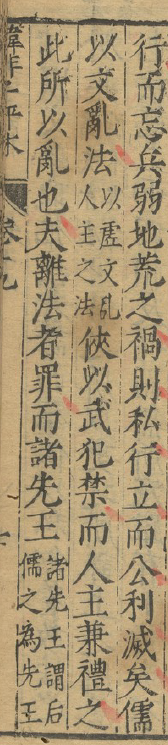 行而忘兵弱地荒之禍則私行立而公利滅矣儒
以文亂法以虛文亂人主之法俠以武犯禁而人主兼禮之
此所以亂也夫離法者罪而諸先王諸先王謂后儒之為先王